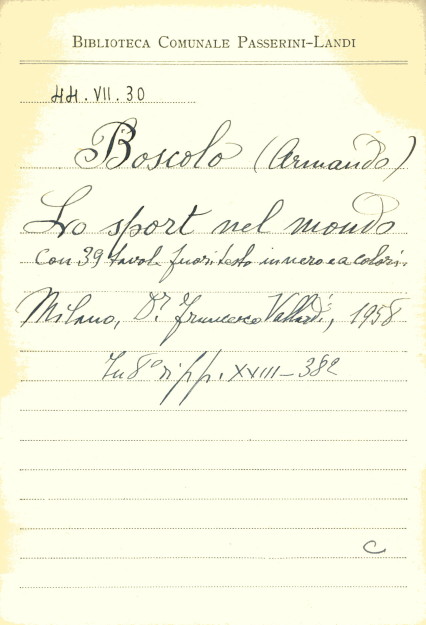 BIBLIOTECA COMUNALE PASSERINI-LANDI
44.VII.30
Boscolo (Armando)
Lo sport nel mondo
con 39 tavole fuori testo in nero e a colori.
Milano, Dr. Francesco Vallardi, 1958
In 8° di pp. XVIII-382
C